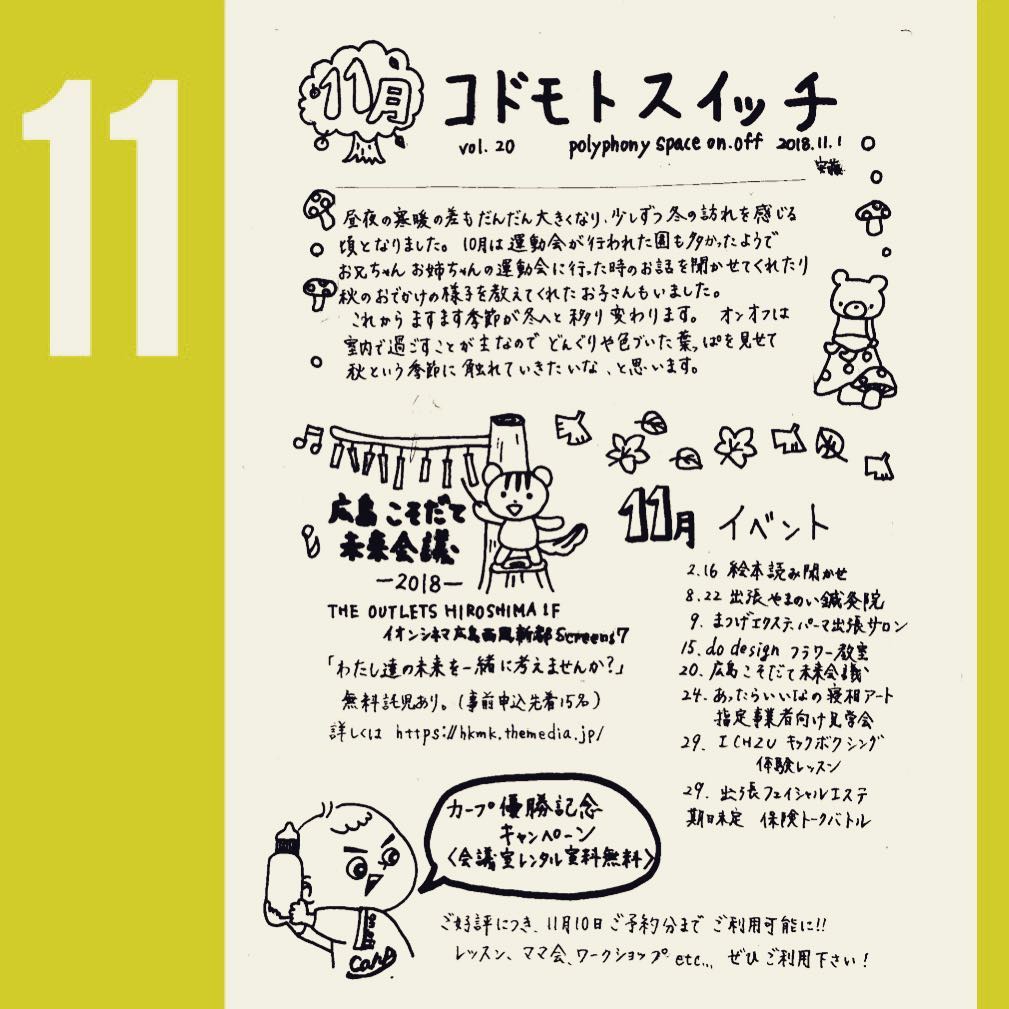 11
11月
コドモト スイッチ
vol. 20 polyphony space on.off 2018.11.1
安藤
昼夜の寒暖の差もだんだん大きくなり、少しずつ冬の訪れを感じる
頃となりました。10月は運動会が行われた園も多かったようで
お兄ちゃん お姉ちゃんの運動会に行った時のお話を聞かせてくれたり
秋のおでかけの様子を教えてくれたお子さんもいました。
これから ますます季節が冬へと移り変わります。 オンオフは
室内で過ごすことが主なので どんぐりや色づいた葉っぱを見せて
秋という季節に触れていきたいな、と思います。
広島こそだて
未来会議
-2018-
THE OUTLETS HIROSHIMA 1F
イオンシネマ広島西風新都 Screens7
「わたし達の未来を一緒に考えませんか?」
無料託児あり。(事前申込先着15名)
詳しくは https://hkmk.themedia.jp/
11月 イベント
2.16 絵本読み聞かせ
8.22 出張やまのい鍼灸院
9. まつげエクステ、パーマ出張サロン
15. do design フラワー教室
20. 広島こそだて未来会議
24. あったらいいなの寝相アート
指定事業者向け見学会
29. ICHZU キックボクシング
体験レッスン
29. 出張フェイシャルエステ
期日未定 保険トークバトル
カープ優勝記念
キャンペーン
<会議室レンタル室料無料>
Carp
ご好評につき、11月10日ご予約分まで ご利用可能に!!
レッスン、ママ会、ワークショップ etc... ぜひご利用下さい!